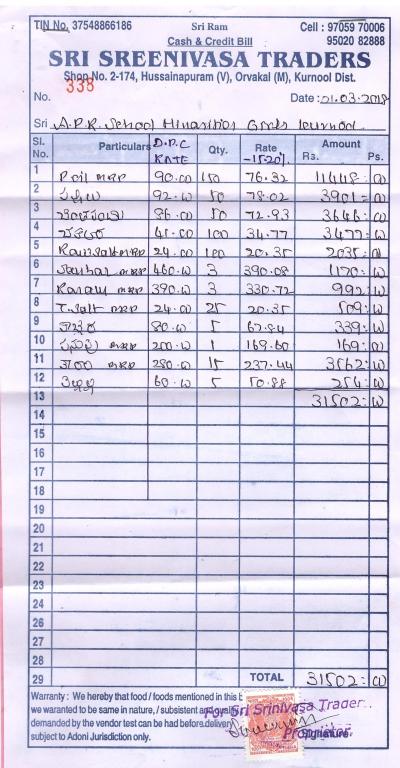 TIN No. 37548866186 Sri Ram Cell : 97059 70006
Cash & Credit Bill 95020 82888
SRI SREENIVASA TRADERS
Shop No. 2-174, Hussainapuram (V), Orvakal (M), Kurnool Dist.
No. 338 Date : 21.03.2018
Sri A.P.R. School Minorities Girls Kurnool
Sl. No. Particulars D.P.C RATE Qty. Rate -15.20% Amount Rs. Ps.
1 P oil MRP 90.00 150 76.32 11448:00
2 92.00 50 78.02 3901:00
3 86.00 50 72.93 3646:00
4 41.00 100 34.77 3477:00
5 MRP 24.00 100 20.35 2035:00
6 Sambar MRP 460.00 3 390.08 1170:00
7 Rasam MRP 390.00 3 330.72 992:00
8 T.Salt MRP 24.00 25 20.35 509:00
9 80.00 5 67.84 339:00
10 MRP 200.00 1 169.60 169:00
11 MRP 280.00 15 237.44 3562:00
12 60.00 5 50.88 254:00
13 31502:00
14
15
16
17
18
19
20
21
22
23
24
25
26
27
28
29 TOTAL 31502:00
Warranty : We hereby that food / foods mentioned in this
we waranted to be same in nature, / subsistent
demanded by the vendor test can be had before.delivery
subject to Adoni Jurisdiction only.
For Sri Srinivasa Trader..
Proprietor
Signature